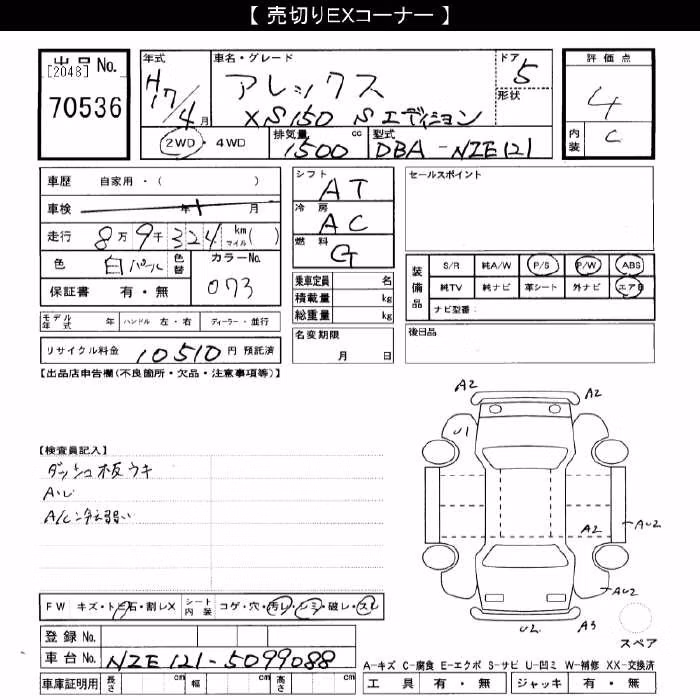 【 売切りEXコーナー 】
出品 No.
[2048]
70536
年式
H17/4月
車名・グレード
アレックス
XS150 Sエディション
ドア 5
形状
評価点
4
内装 C
2WD・4WD
排気量 1500 cc
型式 DBA-NZE121
車歴 自家用・( )
車検 年 月
走行 8万9千324 km マイル( )
色 白パール
色替
カラーNo. 073
保証書 有・無
モデル年式 年 ハンドル 左・右 ディーラー・並行
リサイクル料金 10510円 預託済
シフト AT
冷房 AC
燃料 G
乗車定員 名
積載量 kg
総重量 kg
名変期限
月 日
セールスポイント
装備品
S/R 純A/W P/S P/W ABS
純TV 純ナビ 革シート 外ナビ エアB
ナビ型番
後日品
【出品店申告欄(不良箇所・欠品・注意事項等)】
【検査員記入】
ダッシュ板ウキ
A・U
A/C冷え弱い
A2
A2
U1
A2
AU2
AU2
U2
A3
スペア
FW キズ・トビ石・割レX
シート内装 コゲ・穴・汚レ・シミ・破レ・スレ
登録 No.
車台 No. NZE121-5099088
車庫証明用 長さ cm 幅 cm 高さ cm
A-キズ C-腐食 E-エクボ S-サビ U-凹ミ W-補修 XX-交換済
工具 有・無 ジャッキ 有・無